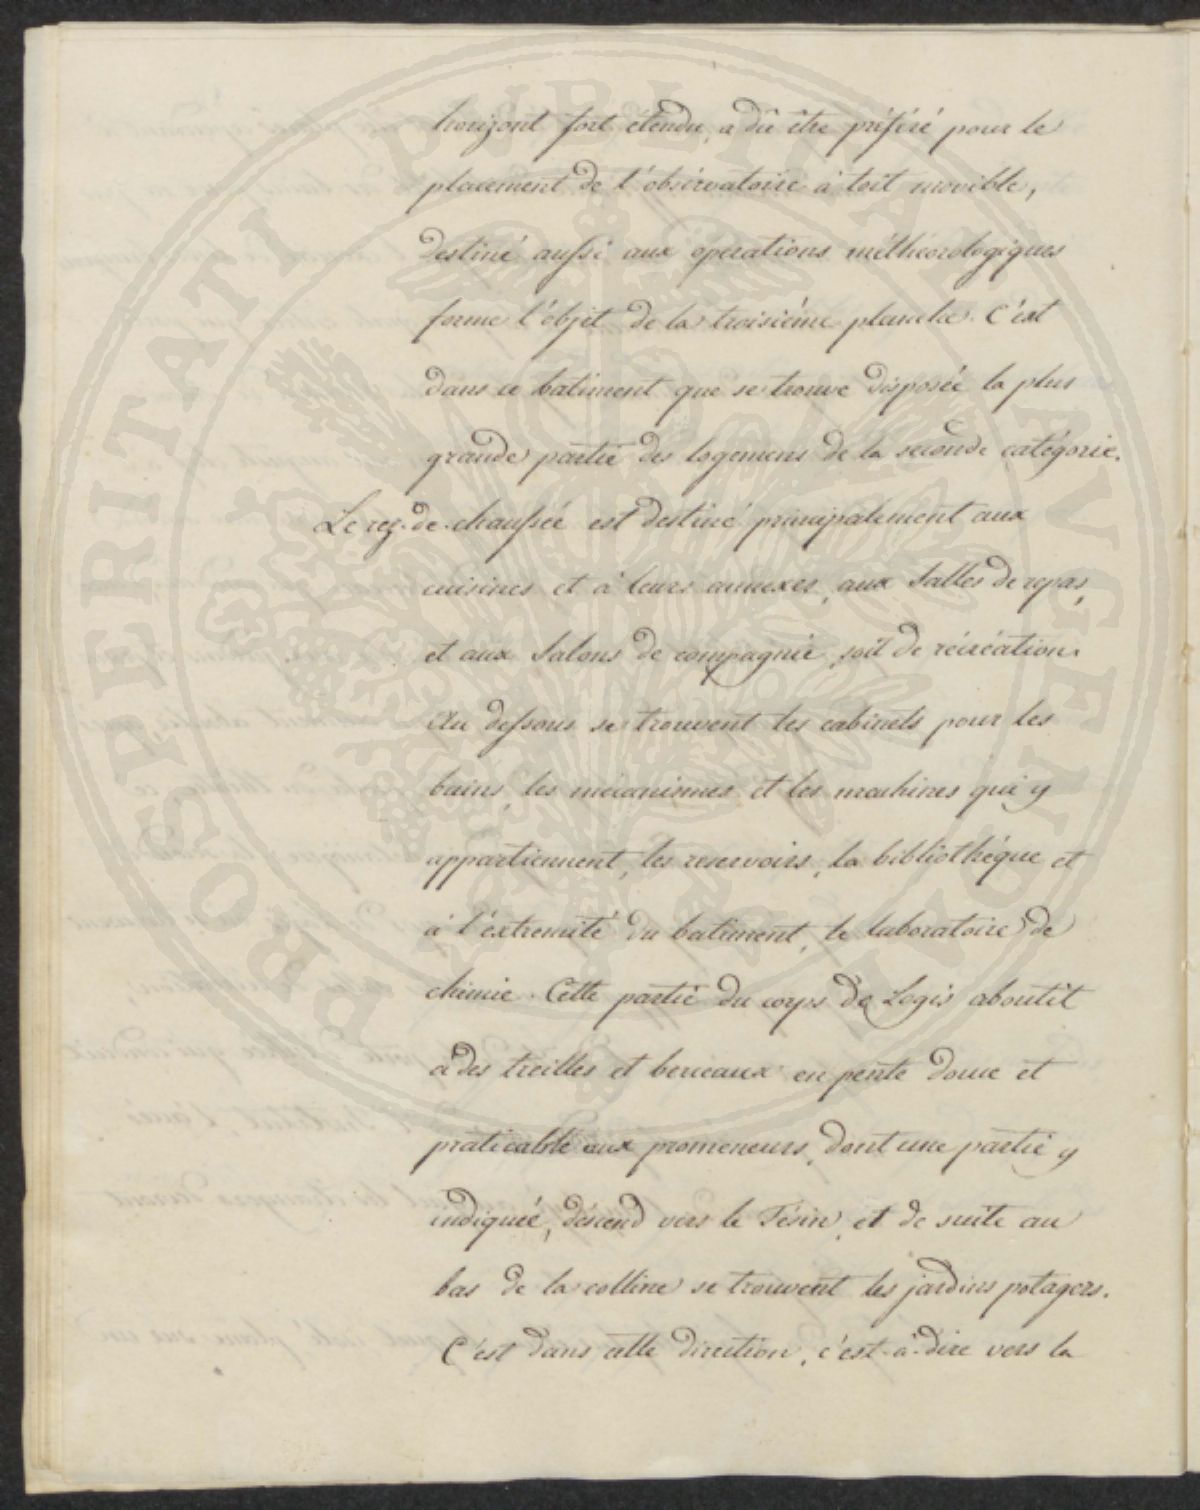 horizont fort étendu, a dû être préféré pour le
placement de l'obsérvatoire à toit movible,
destiné aussi aux operations méthéorologiques
forme l'objet de la troisiéme planche. C'est
dans ce batiment que se trouve disposée la plus
grande partie des logemens de la seconde catégorie.
Le rez-de-chaussée est destiné principalement aux
cuisines et à leurs annexes, aux Salles de repas,
et aux Salons de compagnie, soit de récréation.
Au dessous se trouvent les cabinets pour les
bains, les mécanismes et les machines qui y
appartiennent, les reservoirs, la bibliothéque et
à l'éxtremité du batiment, le laboratoire de
chimie. Cette partie du corps de Logis aboutit
à des treilles et berceaux en pente douce et
praticable aux promeneurs, dont une partie y
indiquée, déscend vers le Tésin, et de suite au
bas de la colline se trouvent les jardins potagers.
C'est dans cette direction, c'est-à-dire vers la
PROSPERITATI PVBLICAE AVGENDAE